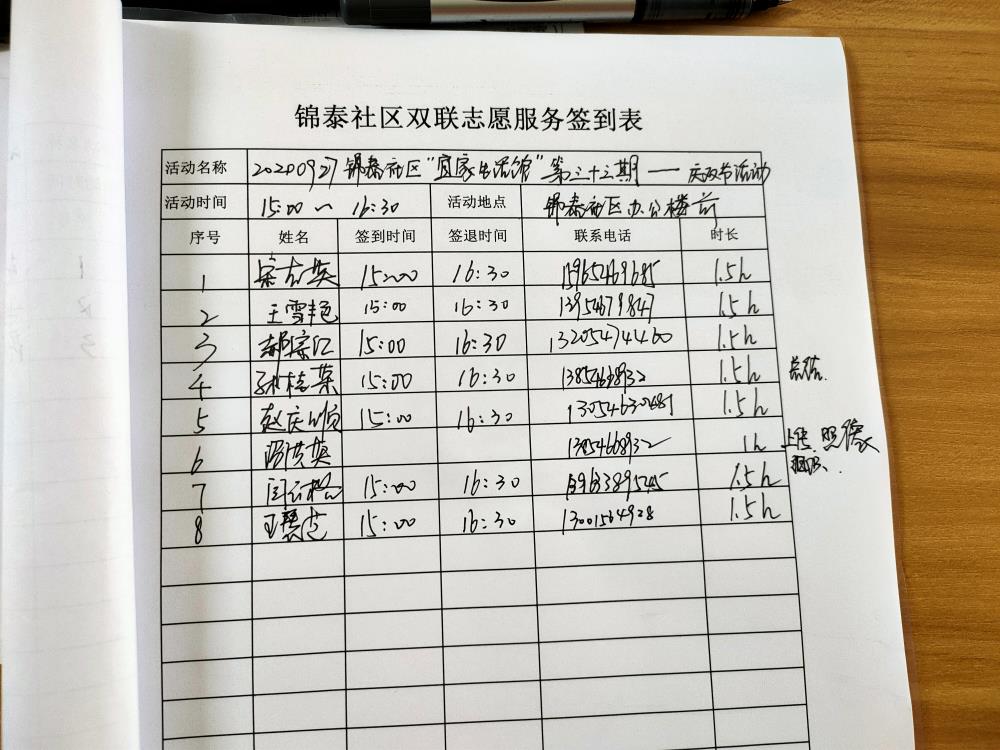 锦泰社区双联志愿服务签到表
活动名称 20200927 锦泰社区“宜家生活馆”第三十三期——庆双节活动
活动时间 15:00 ~ 16:30 活动地点 锦泰社区办公楼前
序号 姓名 签到时间 签退时间 联系电话 时长
1 15:00 16:30 15965469685 1.5h
2 王雪艳 15:00 16:30 13954679847 1.5h
3 15:00 16:30 13205474460 1.5h
4 孙桂英 15:00 16:30 1.5h 总结.
5 赵庆顺 15:00 16:30 13054630481 1.5h
6 1h
7 闫云松 15:00 16:30 1.5h
8 15:00 16:30 13001564928 1.5h